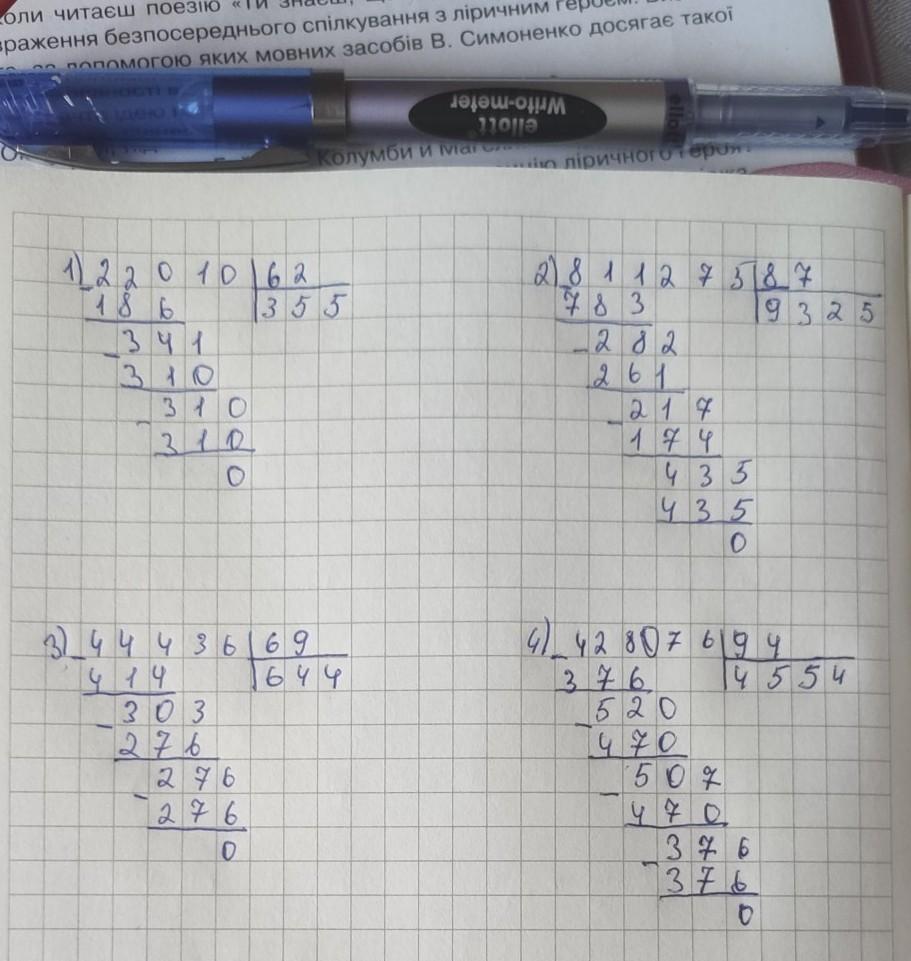 коли читаєш поезію «Ти знаєш,
враження безпосереднього спілкування з ліричним героєм.
допомогою яких мовних засобів В. Симоненко досягає такої
elleott
Writo-meter
Колумби й
ліричного героя
1) 22010 | 62
186 | 355
341
310
310
310
0
2) 811275 | 87
783 | 9325
282
261
217
174
435
435
0
3) 44436 | 69
414 | 644
303
276
276
276
0
4) 428076 | 94
376 | 4554
520
470
507
470
376
376
0